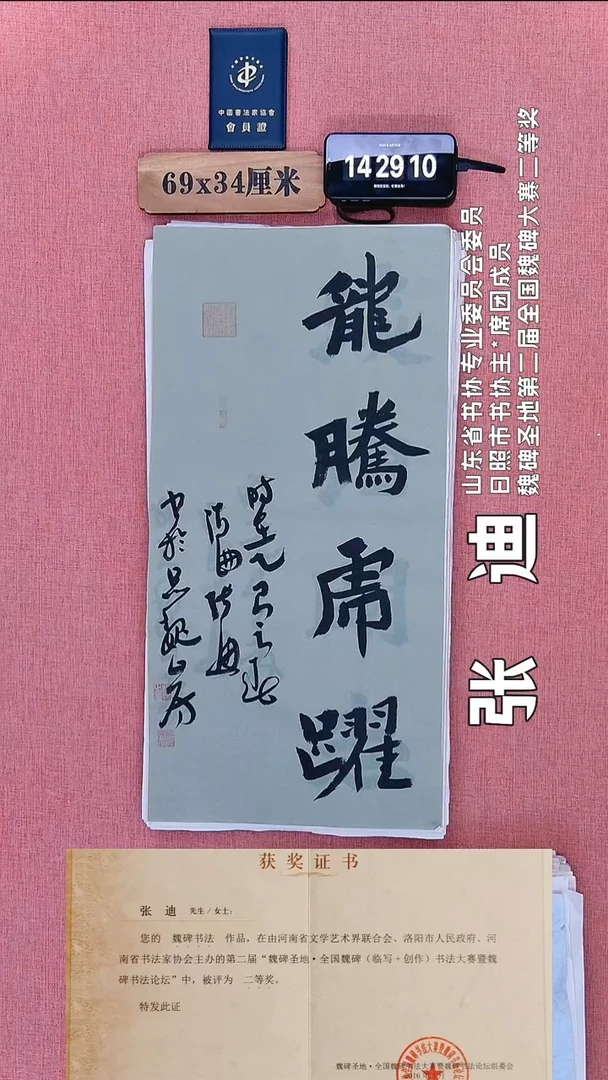 中國書法家協會
會員證
69x34厘米
14 29 10
龍騰虎躍
山东省书协专业委员会委员
日照市书协主*席团成员
魏碑圣地第二届全国魏碑大赛二等奖
张 迪
获奖证书
张 迪 先生/女士：
您的 魏碑书法 作品，在由河南省文学艺术界联合会、洛阳市人民政府、河
南省书法家协会主办的第二届“魏碑圣地·全国魏碑（临写+创作）书法大赛暨魏
碑书法论坛”中，被评为 二等奖。
特发此证
魏碑圣地·全国魏碑书法大赛暨魏碑书法论坛组委会